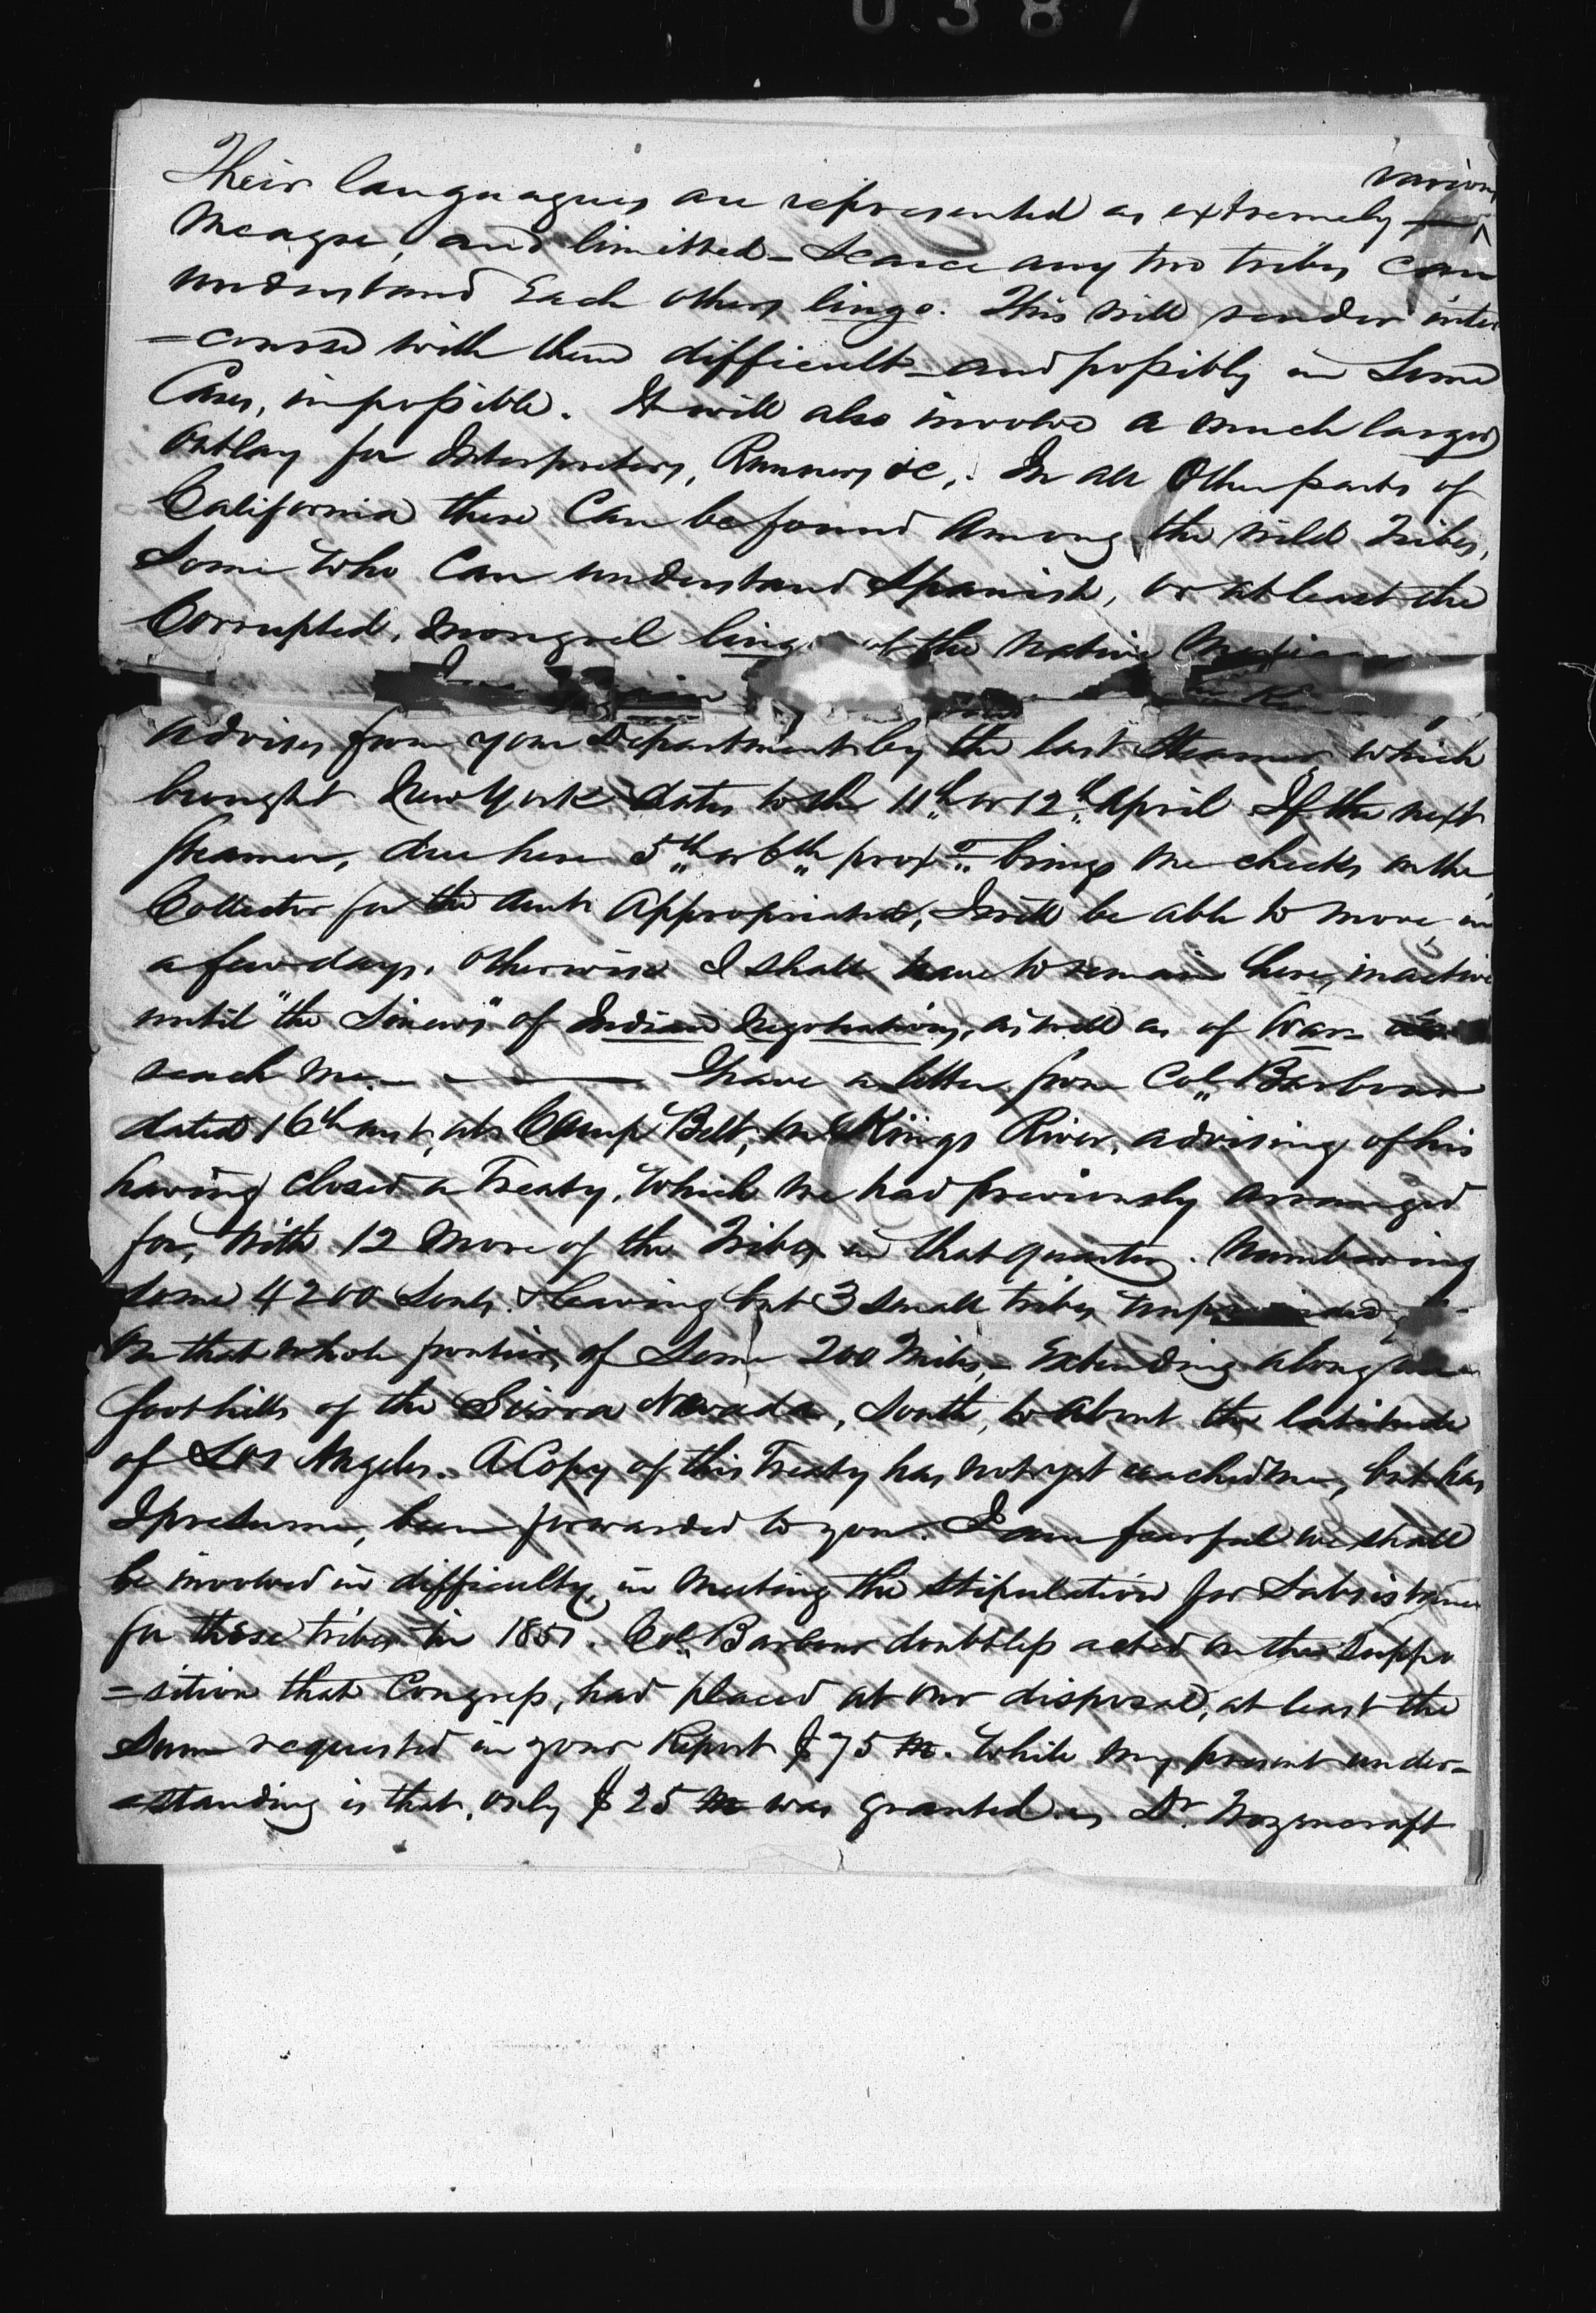 0387
Their languagues are represented as extremely various
Meagre, and limitted - Scarce any two tribes can
understand Each others lingo. This will render inter
=course with them difficult - and possibly in Some
Cases, impossible. It will also involve a much larger
Outlay for Interpreters, Runners &c,. In all Other parts of
California there Can be found Among the wild Tribes,
Some who Can understand Spanish, or at least the
Corrupted, Mongrel lingo of the Native Mexicans
advices from your Department by the last Steamer, which
brought New York dates to the 11th or 12th April If the next
Steamer, due here 5th or 6th prox. brings me checks on the
Collector for the amts Appropriated, I will be able to move in
a few days. Otherwise I shall have to remain here, inactive
until "the Sinews" of Indian Negotiations, as well as of War
reach me. I have a letter from Col. Barbour
dated 16th inst, at Camp Belt, on Kings River, advising of his
having closed a Treaty, which we had previously arranged
for, with 12 more of the Tribes in that quarter. Numbering
some 4200 Souls. Leaving but 3 small tribes
On that whole frontier, of Some 200 Miles, - Extending along the
foothills of the Seirra Nevada, South, to about the latitude
of Los Angeles. A Copy of this Treaty has not yet reached me, but has
I presume, been forwarded to you. I am fearful we shall
be involved in difficulty, in meeting the stipulation for Subsistence
for these tribes in 1851. Col. Barbour doubtless acted on the Suppo
=sition that Congress, had placed at our disposal, at least the
Sum requested in your Report $75 m. While my present under-
=standing is that, only $25 m was granted. as Dr. Wozencraft